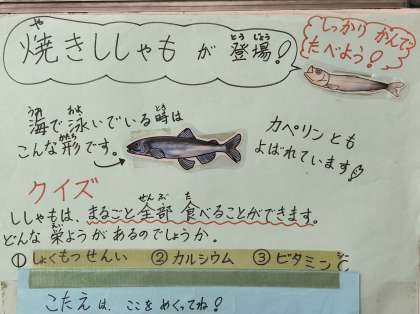 焼きししゃもが登場!
しっかりかんで
たべよう!
海で泳いでいる時は
こんな形です。
カペリンとも
よばれています
クイズ
ししゃもは、まるごと全部食べることができます。
どんな栄ようがあるのでしょうか。
①しょくもつせんい ②カルシウム ③ビタミンC
こたえは、ここをめくってね!